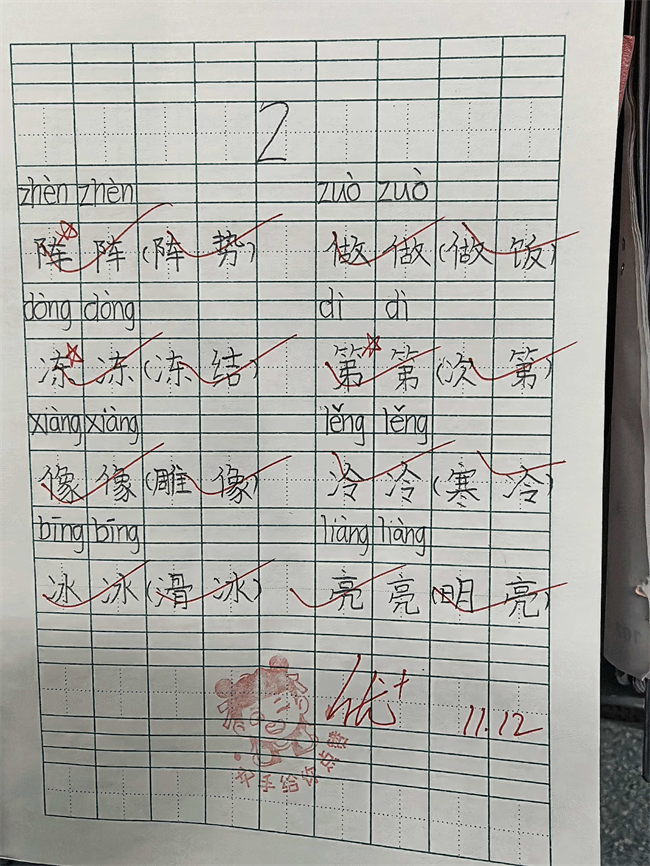 2
zhèn zhèn zuò zuò
阵 阵 (阵 势) 做 做 (做 饭)
dòng dòng dì dì
冻 冻 (冻 结) 第 第 (次 第)
xiàng xiàng lěng lěng
像 像 (雕 像) 冷 冷 (寒 冷)
bīng bīng liàng liàng
冰 冰 (滑 冰) 亮 亮 (明 亮)
优+ 11.12
手给你